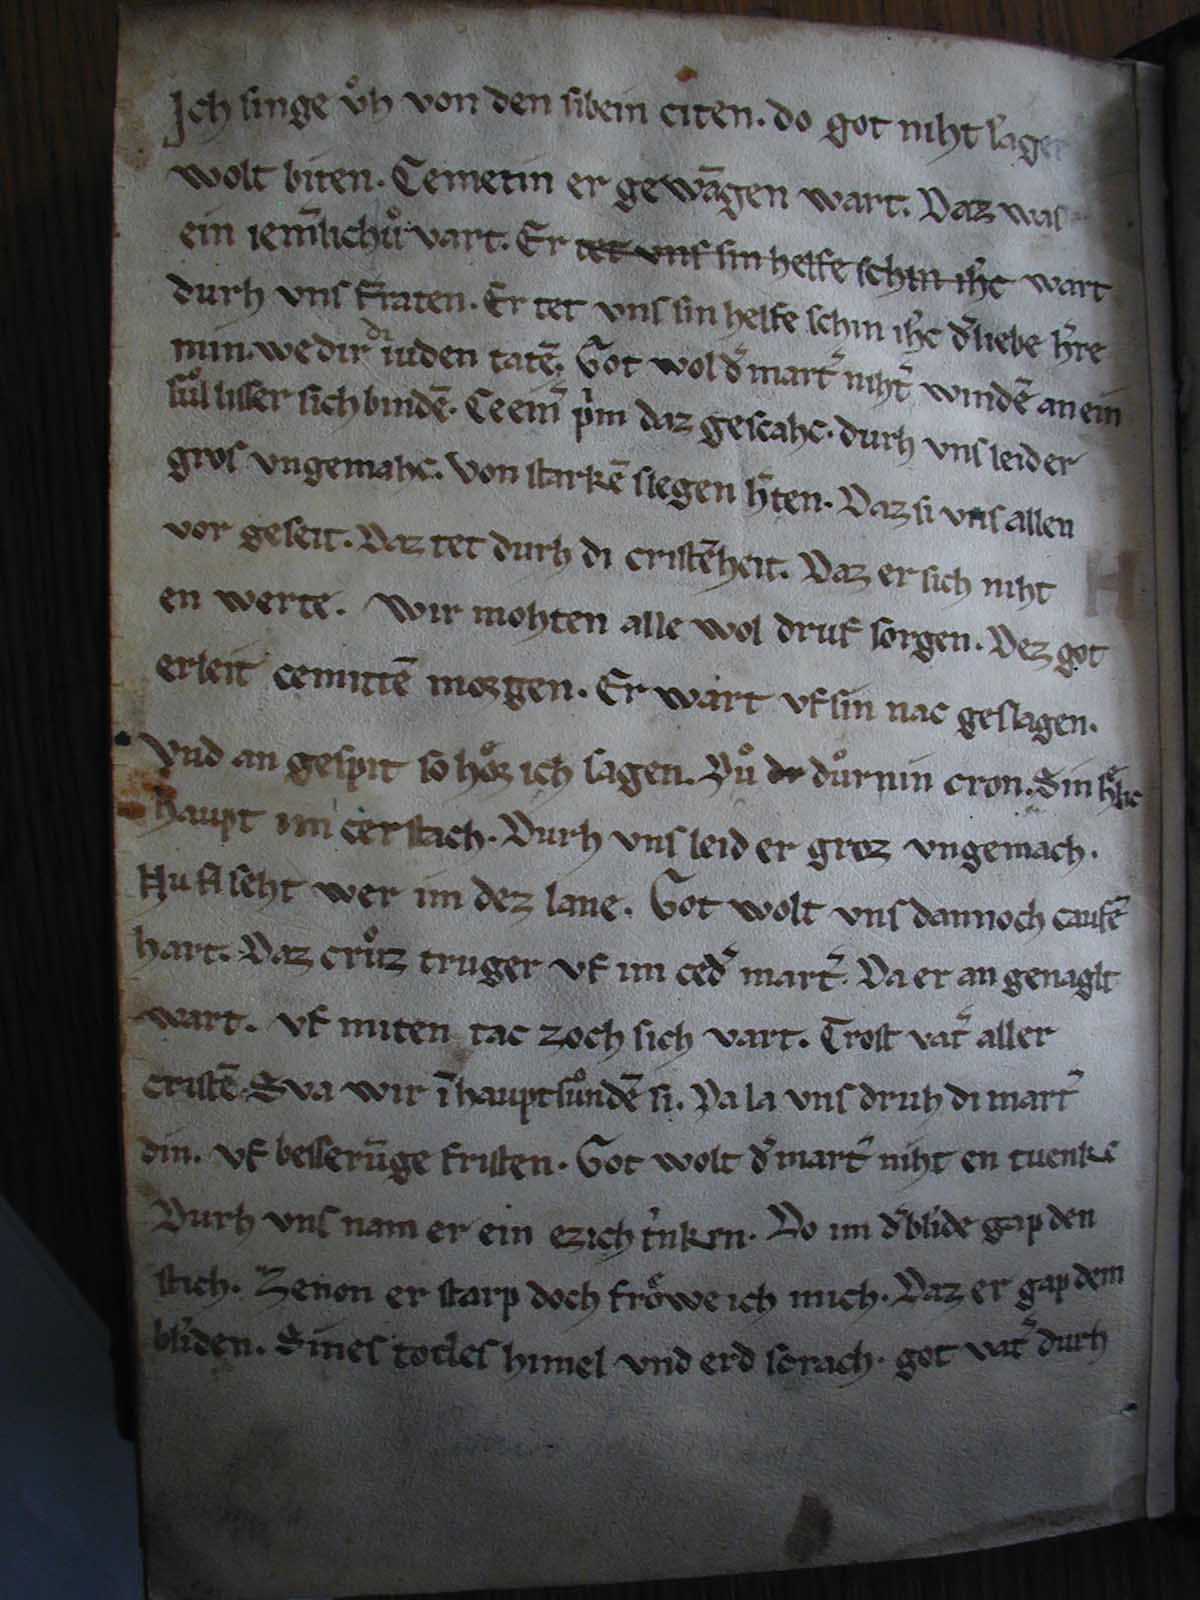 Ich singe v̊h von den sibein citen. do got niht lager
wolt biten. Cemetin er gewāgen wart. Daz was
ein iem̄lichv̊ vart. Er tet vns sin helfe schin ih̄c wart
durh vns fraten. Er tet vns sin helfe schin ih̄c d̄ liebe h̄re
min. we dir di iuden tatē. Got wol d̄ mart̄ niht windē an ein
sůl lisser sich bindē. Ce em̄ prim daz gescahc. durh vns leid er
gros vngemahc. Von starkē slegen h̄ten. Daz si vns allen
vor geseit. Daz tet durh di cristēheit. Daz er sich niht
en werte. Wir mohten alle wol druf sorgen. Dez got
erleit cemittē morgen. Er wart vf sin nac geslagen.
Vnd an gespit so hǒz ich sagen. Dv̊ dv̊rnin cron. Sin
haupt im cerstach. Durh vns leid er groz vngemach.
Nu seht wer im dez lane. Got wolt vns dannoch caufē
hart. Daz crv̊z truger vf im ced̄ mart̄. Da er an genaglt
wart. vf miten tac zoch sich vart. Trost vat̄ aller
cristē. Sva wir ī hauptsv̊ndē si. Da la vns druh di mart̄
din. vf besserūge fristen. Got wolt d̄ mart̄ niht en tuenke
Durh vns nam er ein ezich trinken. Do im d̄ blide gap den
stich. Zenon er starp doch frǒwe ich mich. Daz er gap dem
bliden. Sines todes himel vnd erd scrach. got vat̄ durh